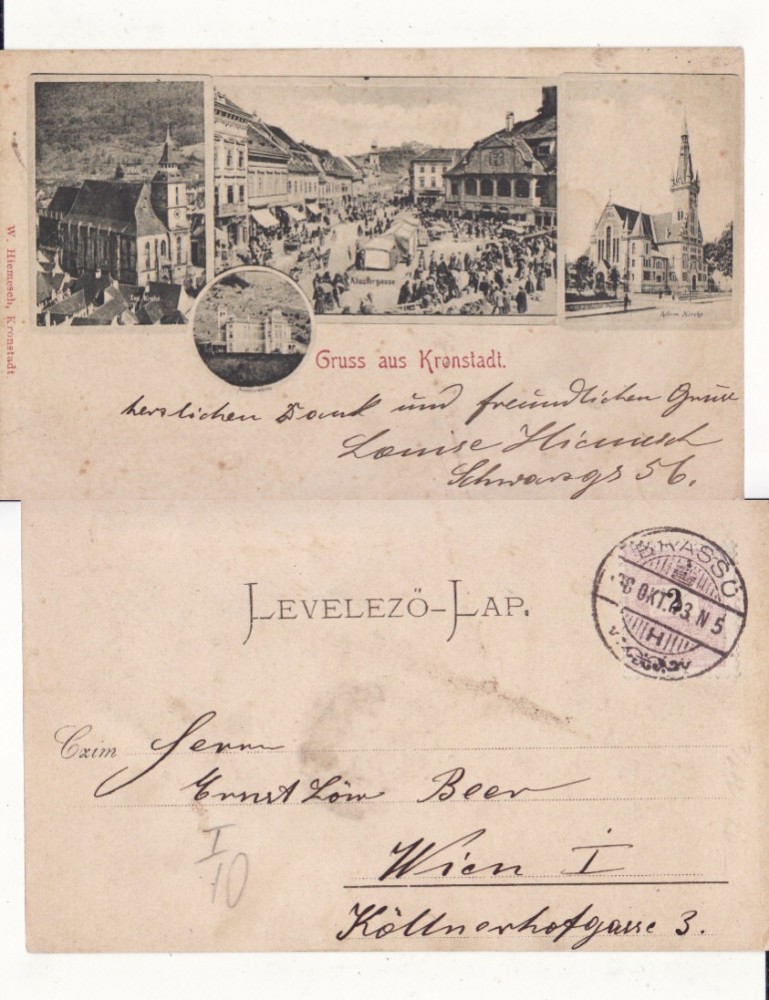 W. Hiemesch, Kronstadt.
Ev. Kirche
Klostergasse
Reform. Kirche
Gruss aus Kronstadt.
herzlichen Dank und freundlichen Gruss
Louise Hiemesch
Schwarzg. 56.
LEVELEZŐ-LAP.
BRASSÓ
OKT. 23. N 5
H
2
Czim
Herrn
Ernst Löw Beer
Wien I
Köllnerhofgasse 3.
I
10